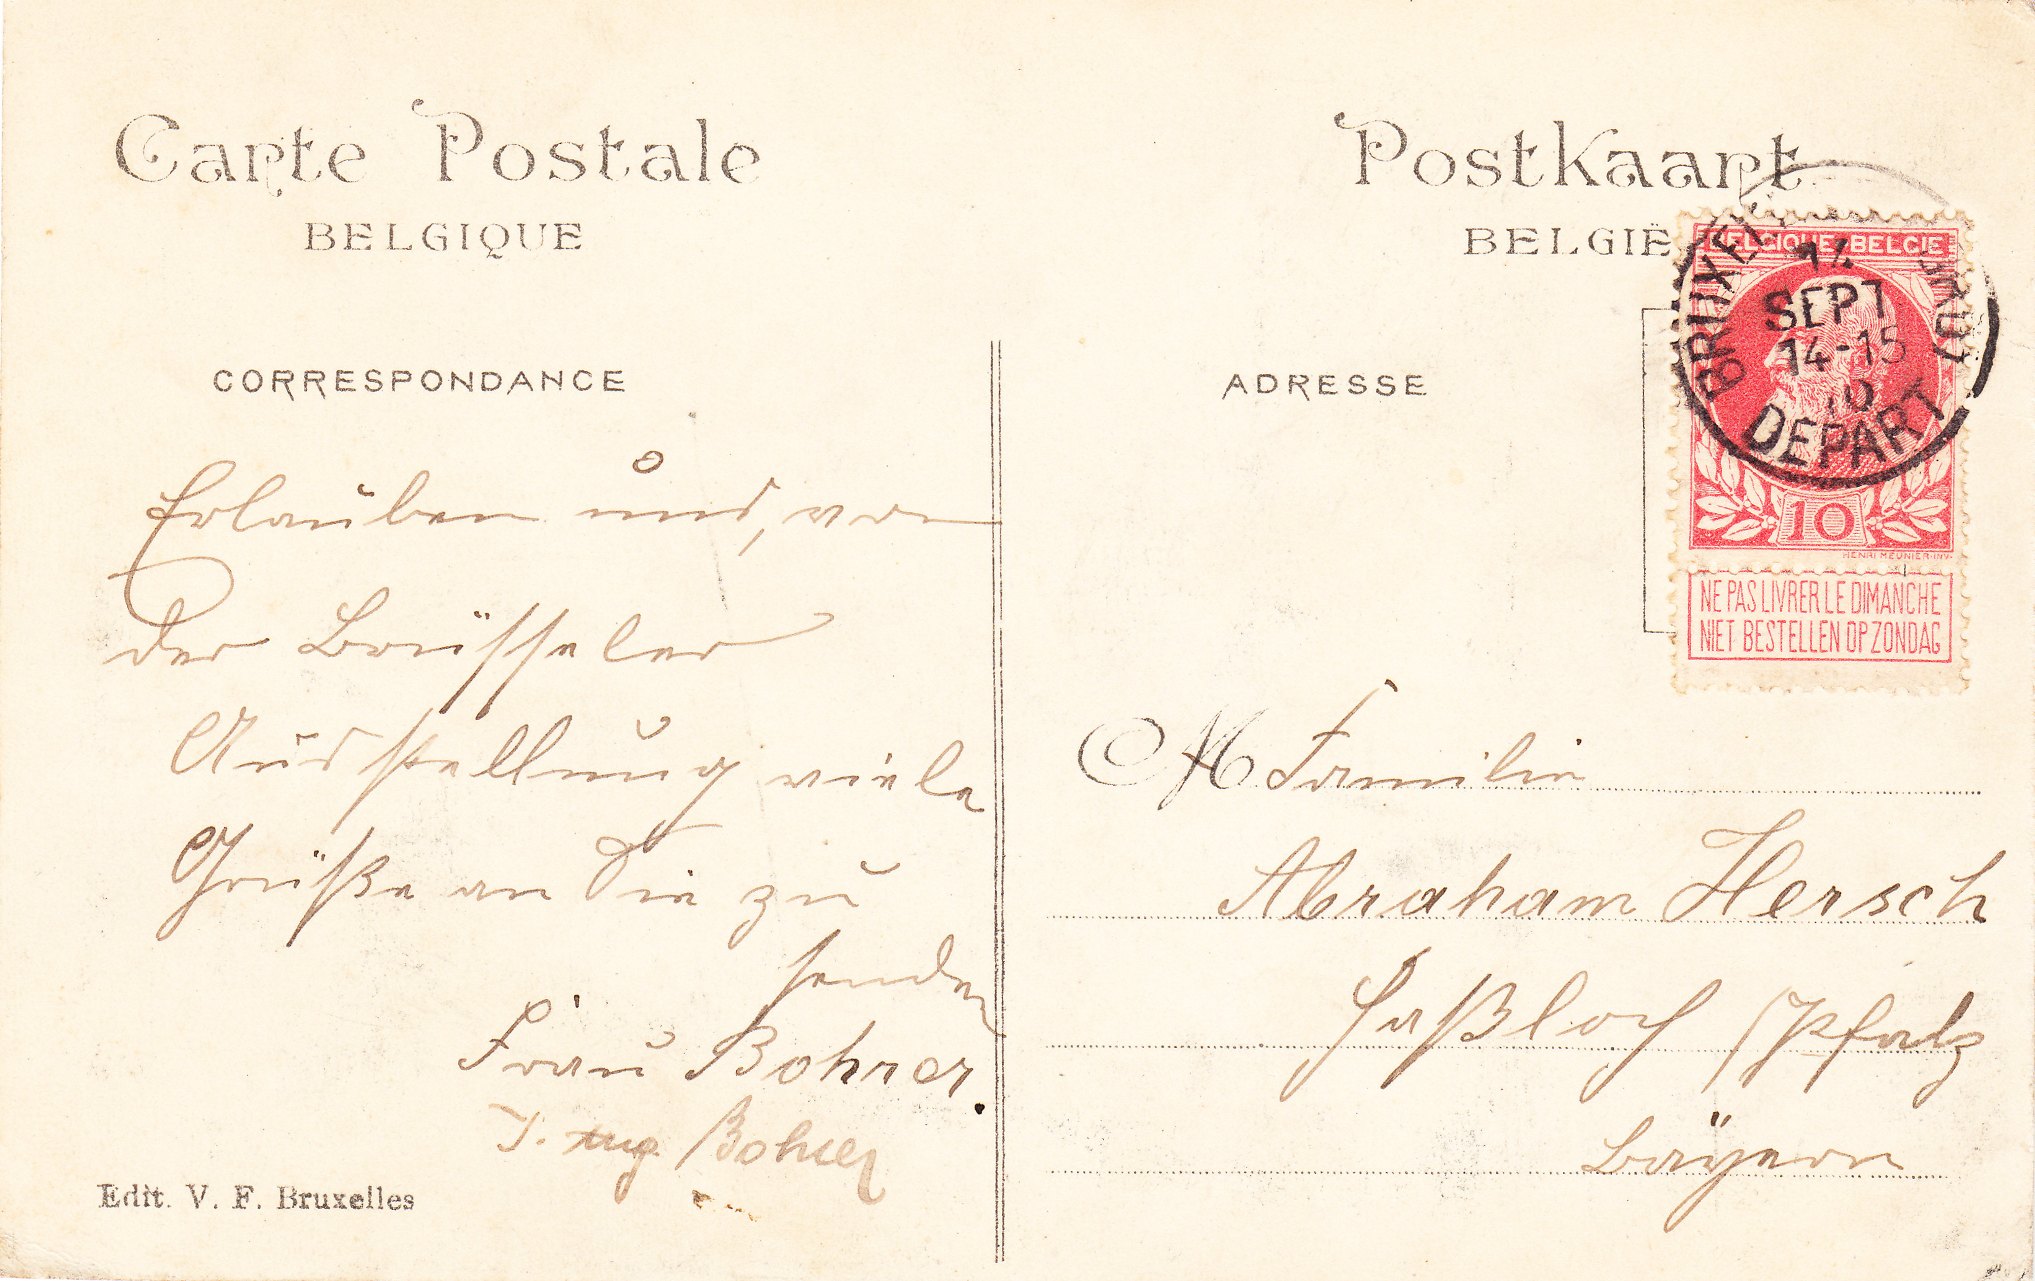 Carte Postale
BELGIQUE
CORRESPONDANCE
Erlauben uns, von
der Brüsseler
Ausstellung viele
Grüße an Sie zu
senden
Frau Bohrer.
J. Aug. Bohrer
Edit. V. F. Bruxelles
Postkaart
BELGIË
ADRESSE
BELGIQUE-BELGIE
10
HENRI MEUNIER-INV.
NE PAS LIVRER LE DIMANCHE
NIET BESTELLEN OP ZONDAG
14
SEPT
14-15
10
DEPART
M Familie
Abraham Hersch
Haßloch /Pfalz
Baÿern